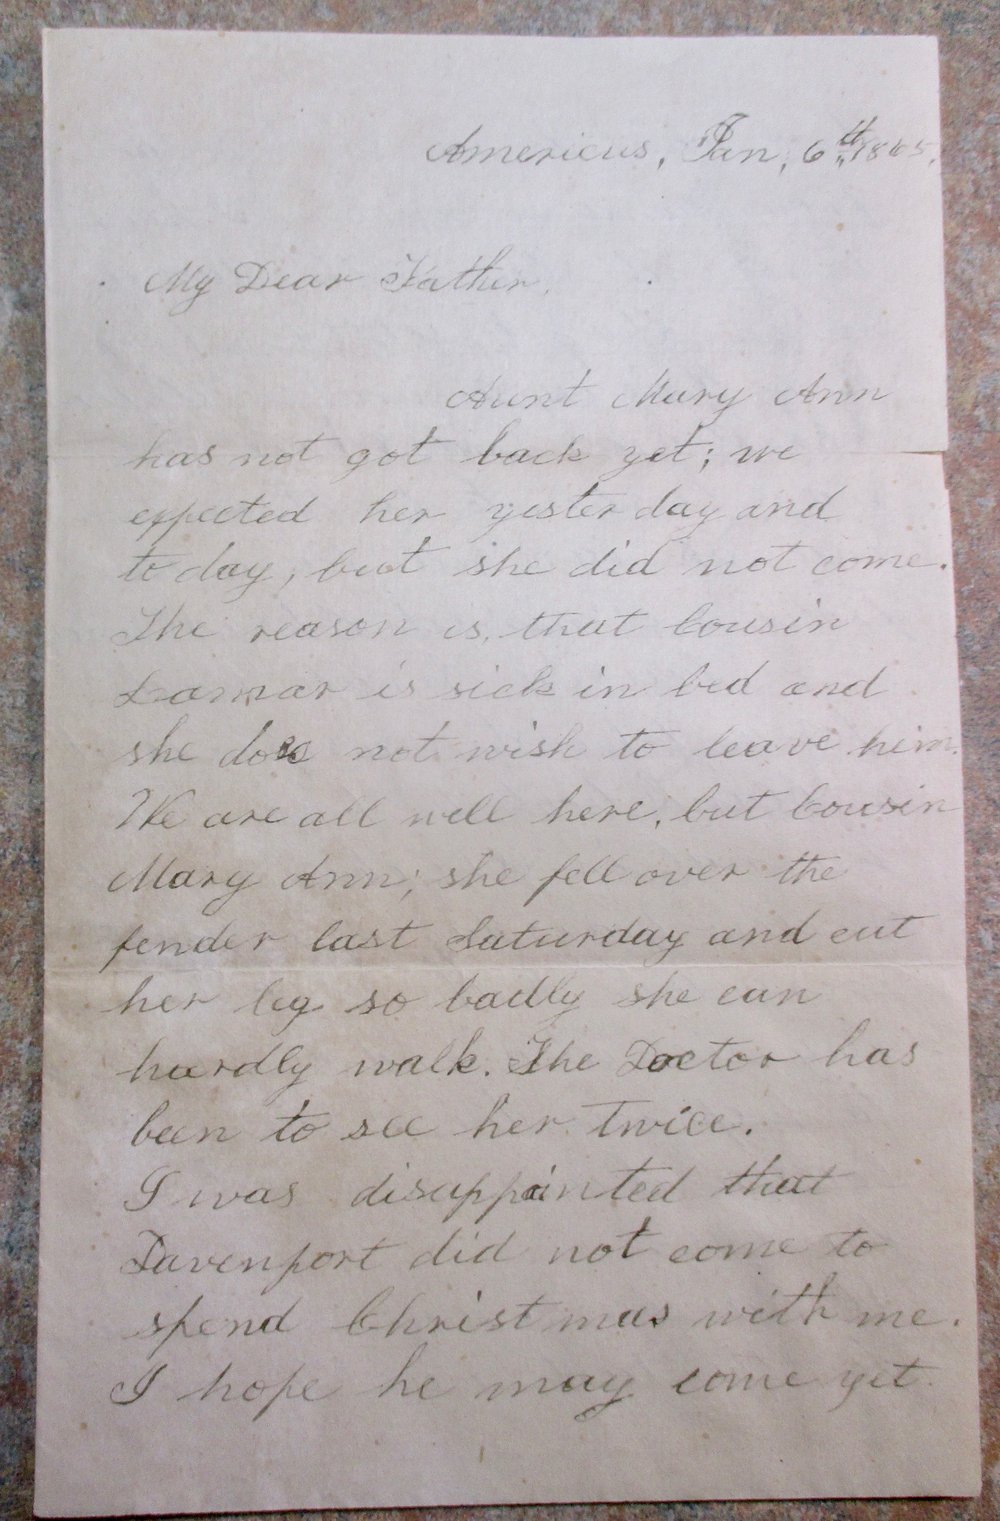 Americus, Jan, 6th, 1865,
My Dear Father,
Aunt Mary Ann
has not got back yet; we
expected her yesterday and
to day, but she did not come.
The reason is, that Cousin
Lamar is sick in bed and
she does not wish to leave him.
We are all well here, but Cousin
Mary Ann; she fell over the
fender last Saturday and cut
her leg so badly she can
hardly walk. The Doctor has
been to see her twice.
I was disappointed that
Davenport did not come to
spend Christmas with me.
I hope he may come yet.